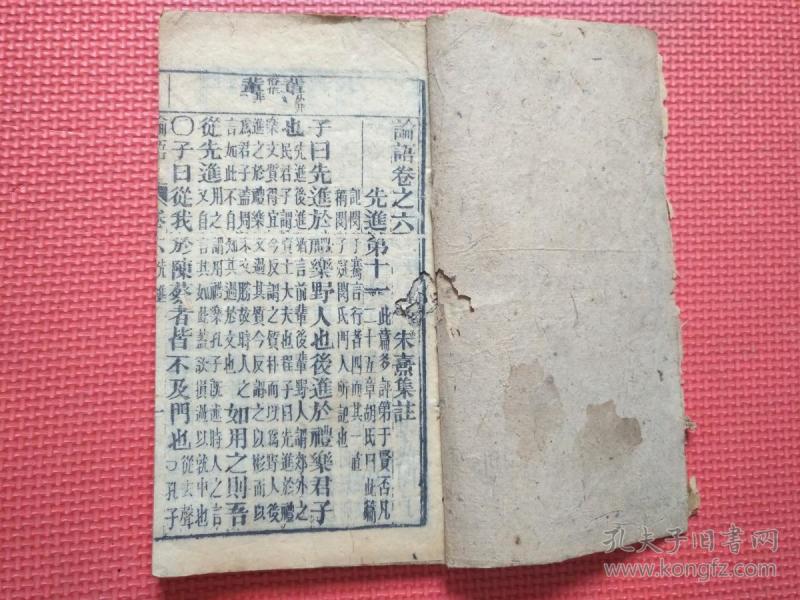 論語卷之六 朱熹集註
先進第十一 此篇多評第于賢否凡
二十五章胡氏曰此篇
記閔子騫言行者四而其一直
稱閔子疑閔氏門人所記也
子曰先進於禮樂野人也後進於禮樂君子
也 先進後進猶言前輩後輩野人謂郊外之
民君子謂賢士大夫也程子曰先進於禮
樂文質得宜今反謂之質朴而以為野人後
進之於禮樂文過其質今反謂之彬而以
為君子蓋周末文勝故時人之
言如此不自知其過於文也 如用之則吾
從先進 用之謂用禮樂孔子既述時人之言
又自言其如此蓋欲損過以就中也
○子曰從我於陳蔡者皆不及門也 從去聲○孔子
論語 卷六 先進 一
孔夫子旧书网
www.kongfz.com